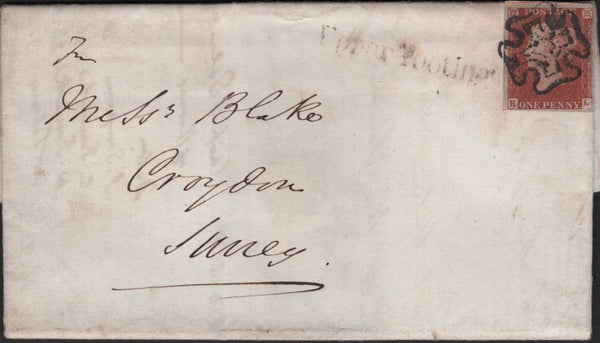 Upper Tooting
POSTAGE
ONE PENNY
For
Messrs Blake
Croydon
Surrey.